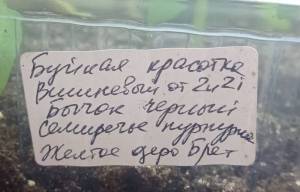 Буйная красотка
Вишневый от 2и2i
Бычок черный
Семиречье пурпурн
Желтое деро Брет